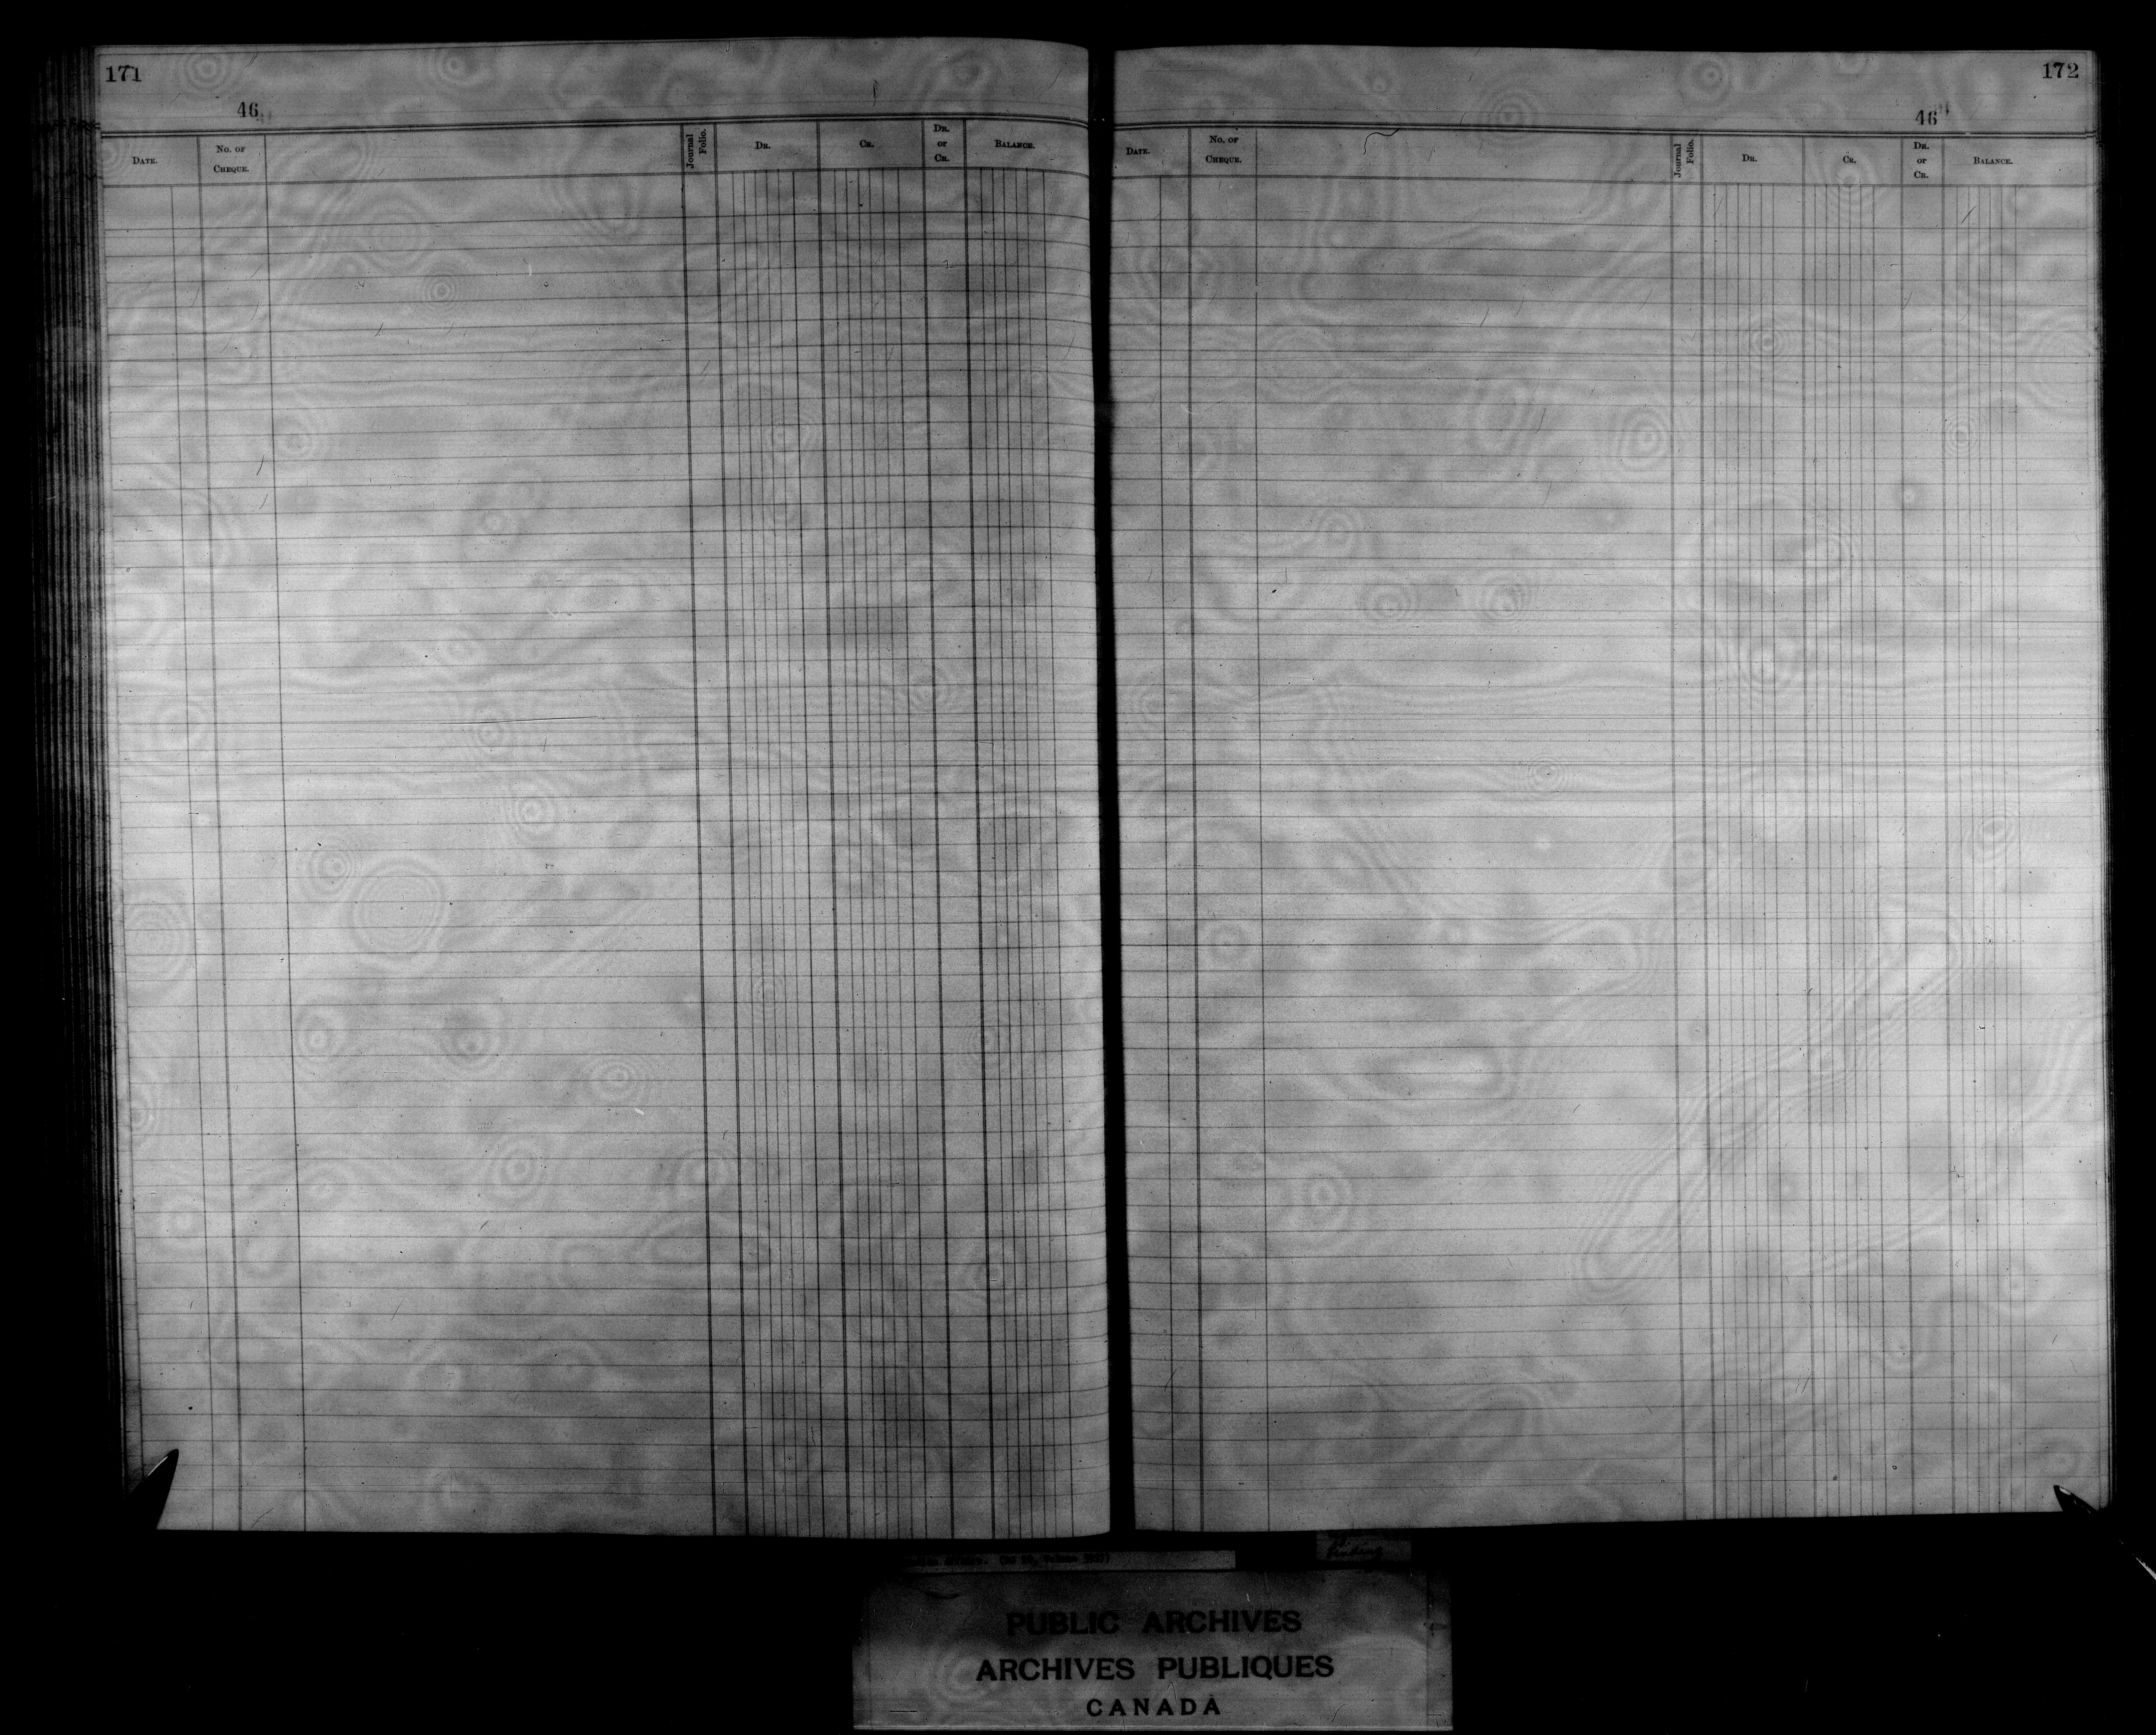 171
46
DATE.
No. OF
CHEQUE.
Journal
Folio.
DR.
CR.
DR.
or
CR.
BALANCE.
172
46
DATE.
No. OF
CHEQUE.
Journal
Folio.
DR.
CR.
DR.
or
CR.
BALANCE.
Affairs. (RG 10, Volume
PUBLIC ARCHIVES
ARCHIVES PUBLIQUES
CANADA